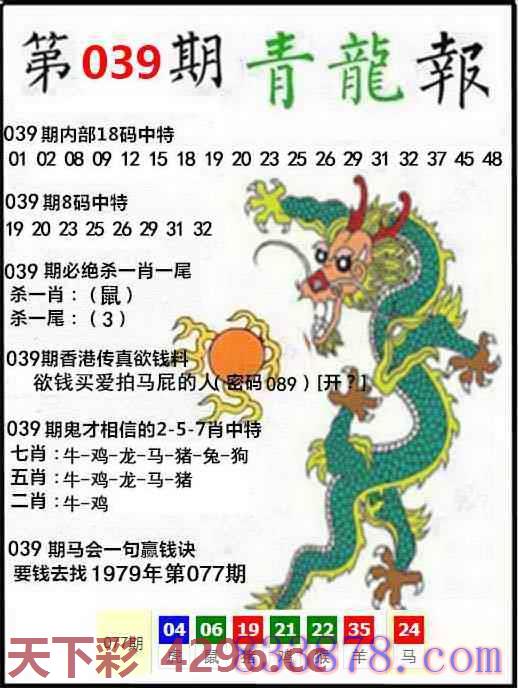 第039期青龍報
039期内部18码中特
01 02 08 09 12 15 18 19 20 23 25 26 29 31 32 37 45 48
039期8码中特
19 20 23 25 26 29 31 32
039 期必绝杀一肖一尾
杀一肖：(鼠)
杀一尾：(3)
039期香港传真欲钱料
欲钱买爱拍马屁的人(密码089) [开?]
039期鬼才相信的2-5-7肖中特
七肖：牛-鸡-龙-马-猪-兔-狗
五肖：牛-鸡-龙-马-猪
二肖：牛-鸡
039 期马会一句赢钱诀
要钱去找1979年第077期
077期 04 06 19 21 22 35 24
虎 鼠 猪 鸡 猴 羊 马
天下彩 4296.cc